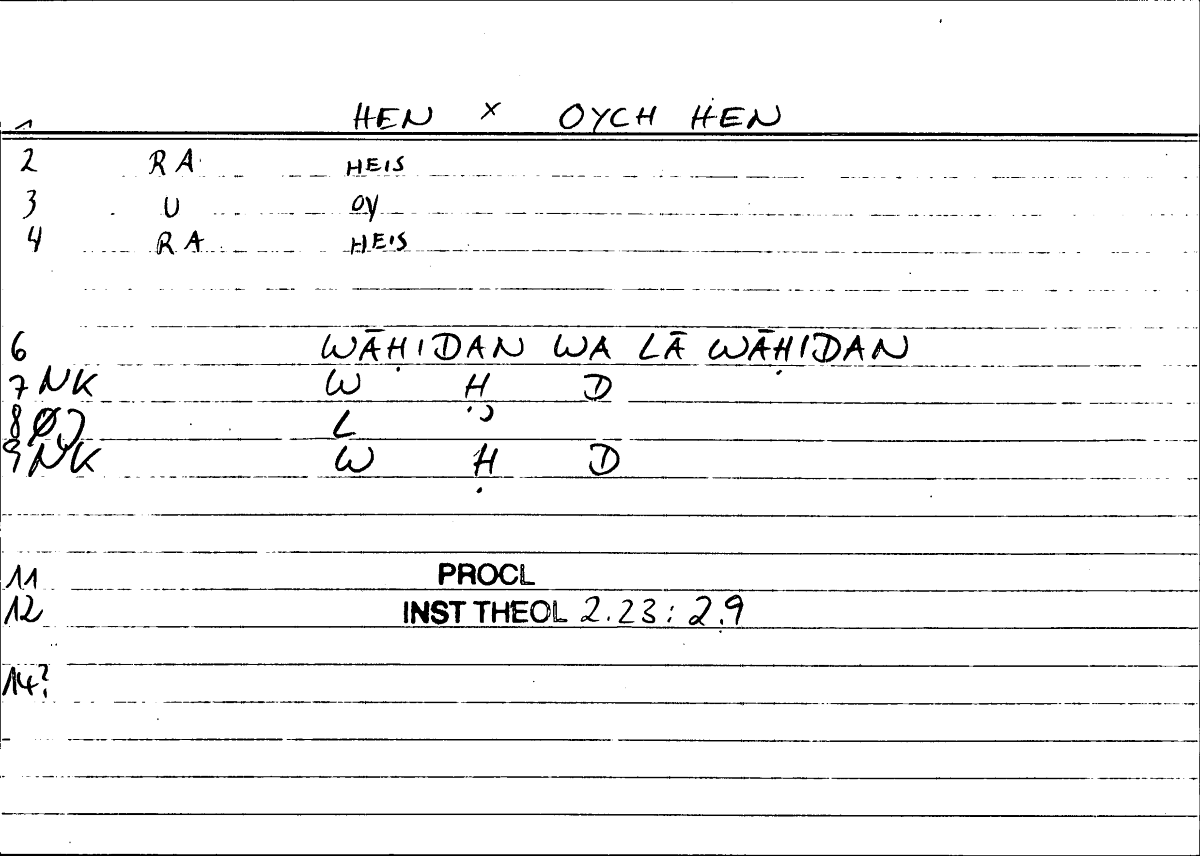 1 HEN × OYCH HEN
2 RA HEIS
3 U OY
4 RA HEIS
6 WĀḤIDAN WA LĀ WĀḤIDAN
7 NK W Ḥ D
8 L
9 NK W Ḥ D
11 PROCL
12 INST THEOL 2.23: 2.9
14?